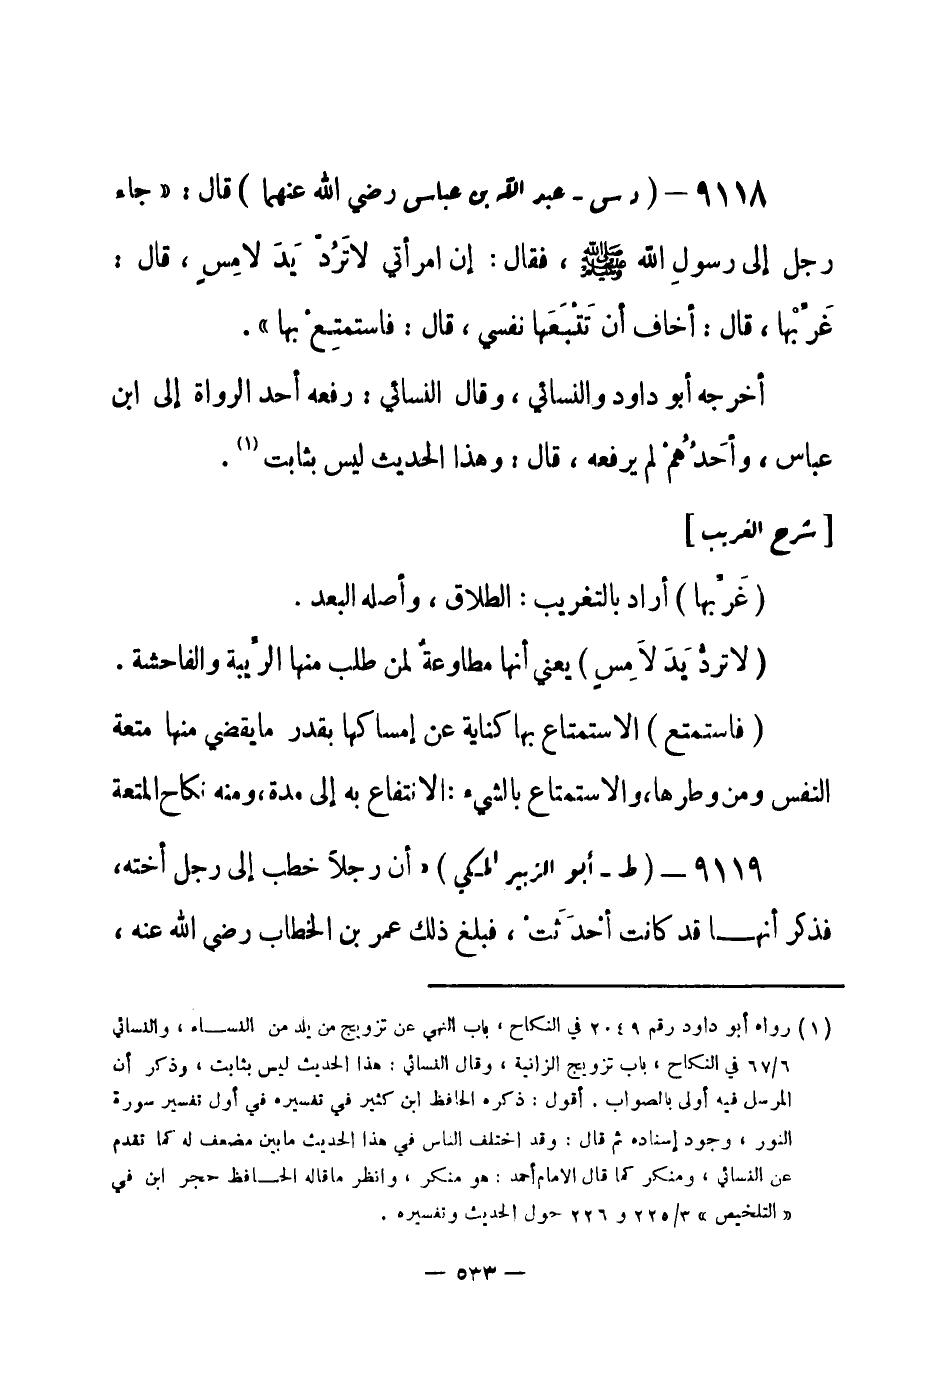 ٩١١٨ – ( د س - عبد الله بن عباس رضي الله عنهما ) قال : « جاء
رجل إلى رسولِ الله ﷺ ، فقال : إن امرأتي لاتَرُدّْ يَدَ لامِسٍ ، قال :
غَرِّبْها ، قال : أخاف أن تَتْبَعَها نفسي ، قال : فاستمتِعْ بها » .
أخرجه أبو داود والنسائي ، وقال النسائي : رفعه أحد الرواة إلى ابن
عباس ، وأحَدُهُمْ لم يرفعه ، قال : وهذا الحديث ليس بثابت (١) .
[ شرح الغريب ]
( غَرِّبْها ) أراد بالتغريب : الطلاق ، وأصله البعد .
( لاتردُّ يَدَ لاَمِسٍ ) يعني أنها مطاوعةٌ لمن طلب منها الرِّيبة والفاحشة .
( فاستمتع ) الاستمتاع بها كناية عن إمساكها بقدر مايقضي منها متعة
النفس ومن وطرها،والاستمتاع بالشيء :الانتفاع به إلى مدة،ومنه نكاح المتعة
٩١١٩ – ( ط - أبو الزبير المكي ) « أن رجلاً خطب إلى رجل أخته،
فذكر أنهـــا قد كانت أحْدَثَتْ ، فبلغ ذلك عمر بن الخطاب رضي الله عنه ،
(١) رواه أبو داود رقم ٢٠٤٩ في النكاح ، باب النهي عن تزويج من يلد من النســـاء ، والنسائي
٦٧/٦ في النكاح ، باب تزويج الزانية ، وقال النسائي : هذا الحديث ليس بثابت ، وذكر أن
المرسل فيه أولى بالصواب . أقول : ذكره الحافظ ابن كثير في تفسيره في أول تفسير سورة
النور ، وجود إسناده ثم قال : وقد اختلف الناس في هذا الحديث مابين مضعف له كما تقدم
عن النسائي ، ومنكر كما قال الامام أحمد : هو منكر ، وانظر ماقاله الحـــافظ حجر ابن في
« التلخيص » ٢٢٥/٣ و ٢٢٦ حول الحديث وتفسيره .
— ٥٣٣ —